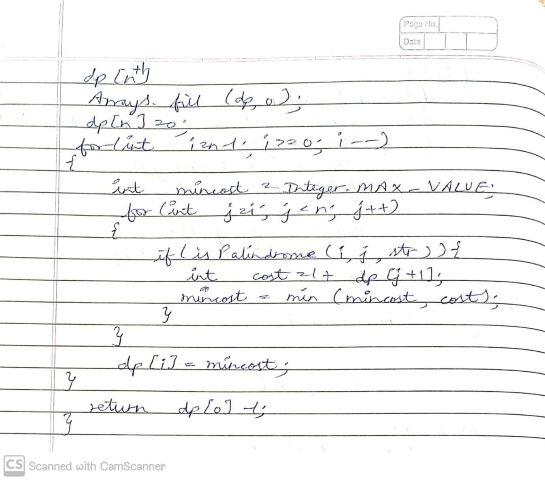 Page No.
Date
dp [n+1]
Arrays. fill (dp, 0);
dp[n] = 0;
for (int i = n-1; i >= 0; i--)
{
int mincost = Integer. MAX_VALUE;
for (int j = i; j < n; j++)
{
if (is Palindrome (i, j, str)) {
int cost = 1 + dp [j+1];
mincost = min (mincost, cost);
}
}
dp [i] = mincost;
}
return dp [0] -1;
}
CS Scanned with CamScanner